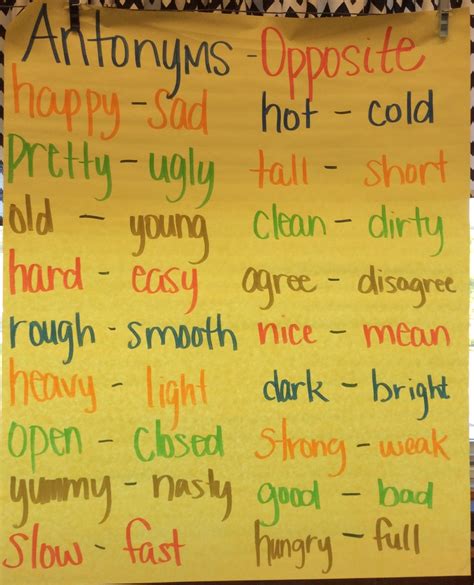 Antonyms - Opposite
happy - sad
hot - cold
pretty - ugly
tall - short
old - young
clean - dirty
hard - easy
agree - disagree
rough - smooth
nice - mean
heavy - light
dark - bright
open - closed
strong - weak
yummy - nasty
good - bad
slow - fast
hungry - full